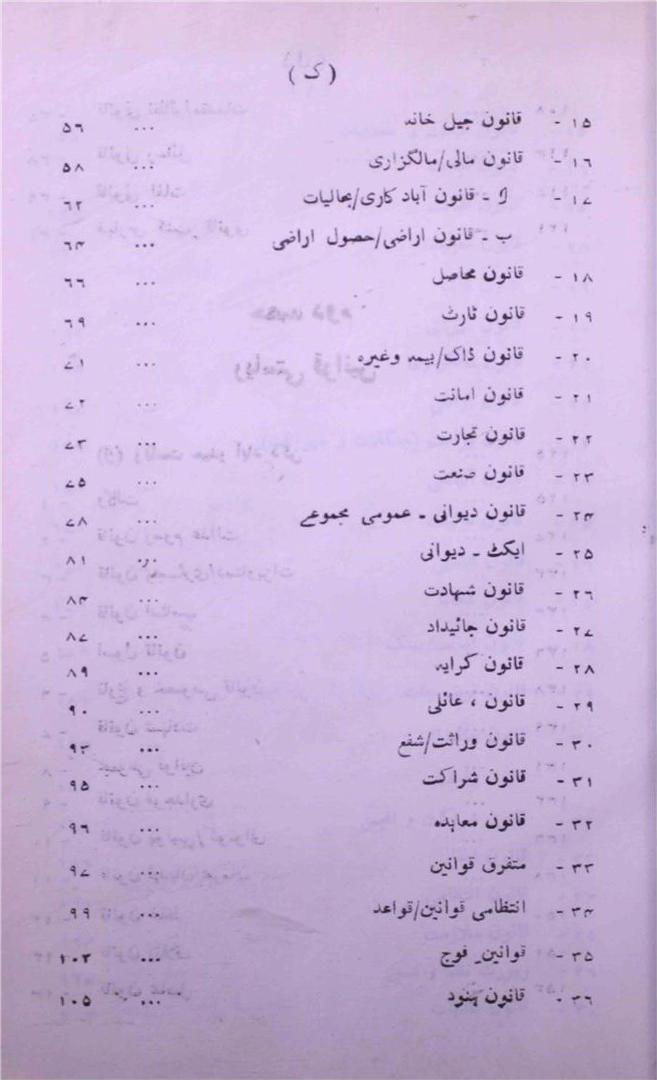 (ک)
۱۵ - قانون جیل خانہ ... ۵۶
۱۶ - قانون مالی/مالگزاری ... ۵۸
۱۷ - ا - قانون آبادکاری/بحالیات ... ۶۲
ب - قانون اراضی/حصول اراضی ... ۶۴
۱۸ - قانون محاصل ... ۶۶
۱۹ - قانون ٹارٹ ... ۶۹
۲۰ - قانون ڈاک/بیمہ وغیرہ ... ۷۱
۲۱ - قانون امانت ... ۷۲
۲۲ - قانون تجارت ... ۷۳
۲۳ - قانون صنعت ... ۷۵
۲۴ - قانون دیوانی - عمومی مجموعے ... ۷۸
۲۵ - ایکٹ - دیوانی ... ۸۱
۲۶ - قانون شہادت ... ۸۴
۲۷ - قانون جائیداد ... ۸۷
۲۸ - قانون کرایہ ... ۸۹
۲۹ - قانون ، عائلی ... ۹۰
۳۰ - قانون وراثت/شفع ... ۹۳
۳۱ - قانون شراکت ... ۹۵
۳۲ - قانون معاہدہ ... ۹۶
۳۳ - متفرق قوانین ... ۹۷
۳۴ - انتظامی قوانین/قواعد ... ۹۹
۳۵ - قوانین فوج ... ۱۰۳
۳۶ - قانون ہنود ... ۱۰۵